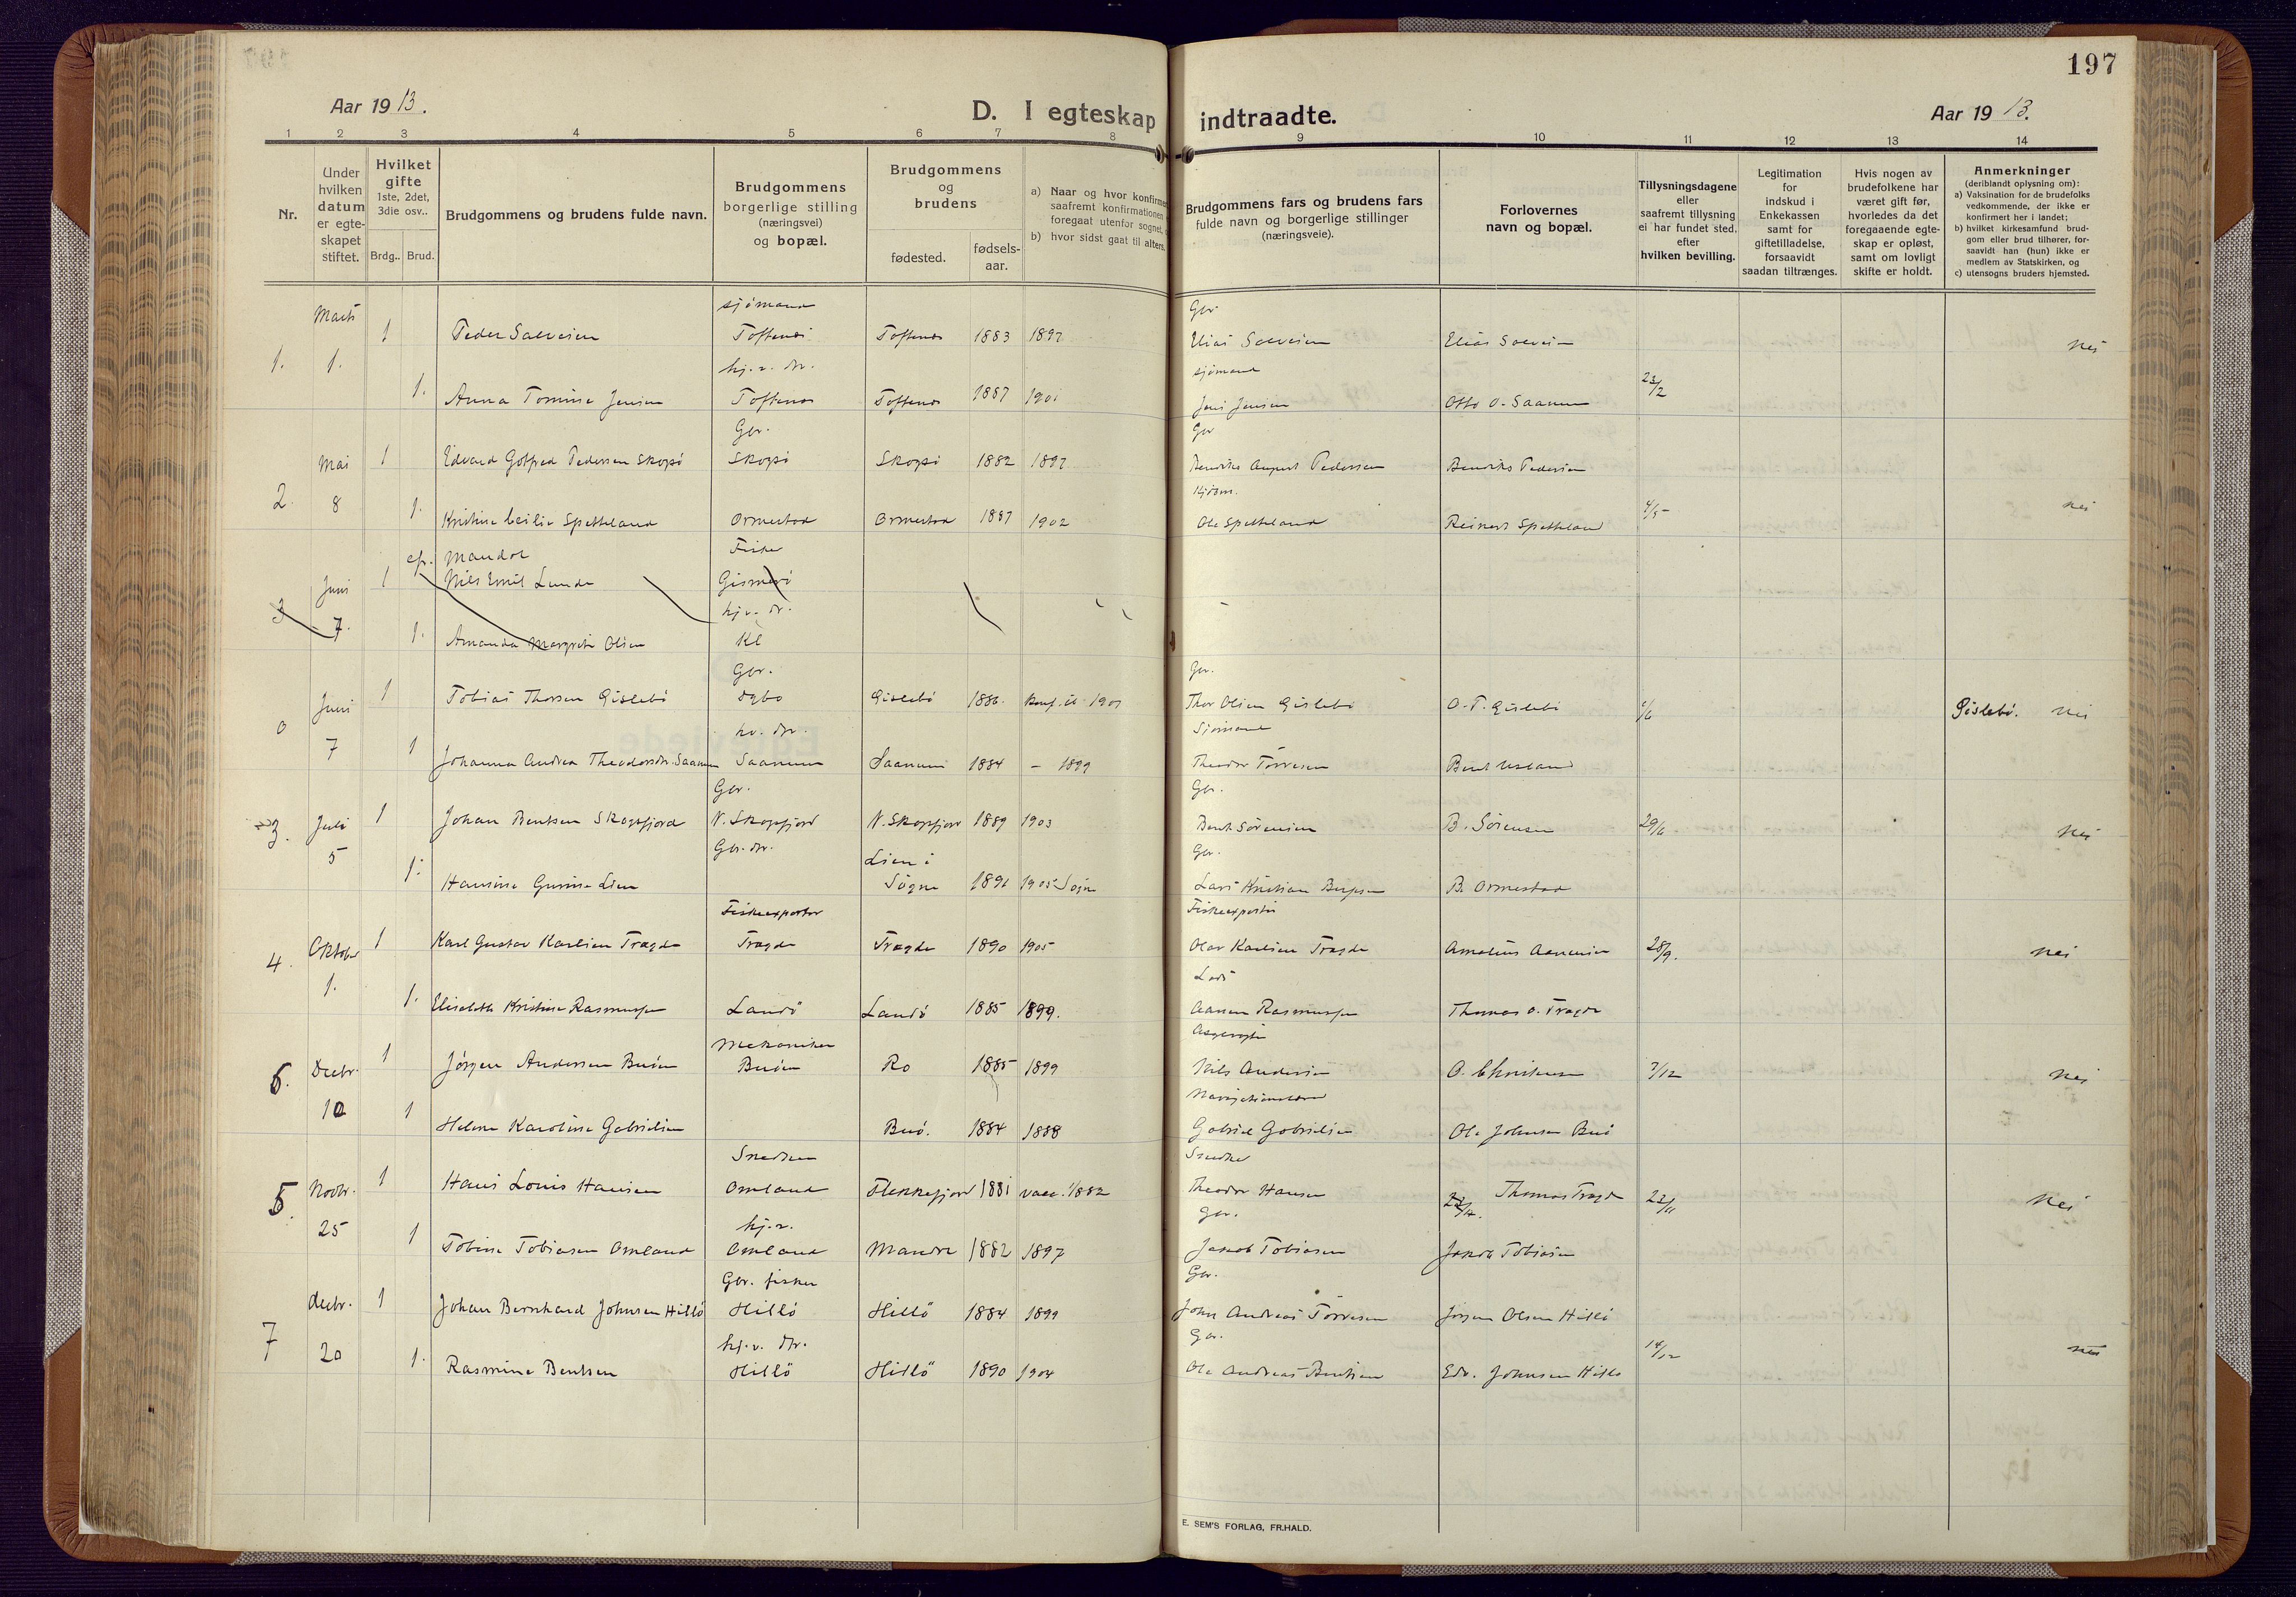 197
Aar 1913.
D. I egteskap indtraadte.
Aar 1913.
1 2 3 4 5 6 7 8 9 10 11 12 13 14
Nr.
Under hvilken datum er egte-skapet stiftet.
Hvilket gifte
1ste, 2det, 3die osv..
Brdg.. Brud.
Brudgommens og brudens fulde navn.
Brudgommens borgerlige stilling (næringsvei) og bopæl.
Brudgommens og brudens
fødested. fødsels-aar.
a) Naar og hvor konfirme
saafremt konfirmationen
foregaat utenfor sognet,
b) hvor sidst gaat til alters.
Brudgommens fars og brudens fars
fulde navn og borgerlige stillinger
(næringsveie).
Forlovernes
navn og bopæl.
Tillysningsdagene
eller
saafremt tillysning
ei har fundet sted,
efter
hvilken bevilling.
Legitimation
for
indskud i
Enkekassen
samt for
giftetilladelse,
forsaavidt
saadan tiltrænges.
Hvis nogen av
brudefolkene har
været gift før,
hvorledes da det
foregaaende egte-
skap er opløst,
samt om lovligt
skifte er holdt.
Anmerkninger
(deriblandt oplysning om):
a) Vaksination for de brudefolks
vedkommende, der ikke er
konfirmert her i landet;
b) hvilket kirkesamfund brud-
gom eller brud tilhører, for-
saavidt han (hun) ikke er
medlem av Statskirken, og
c) utensogns bruders hjemsted.
sjømand Gbr.
Marts 1 Peder Salvesen Toftenes Toftenes 1883 1897 Elias Salvesen Elias Salvesen nei
1. 1. hj. v. dtr. sjømand
1. Anna Tomine Jensen Toftenes Toftenes 1887 1901 Jens Jensen Otto O. Saanum 23/2
Gbr. Gbr
Mai 1 Edvard Gotfred Pedersen Skogsø Skogsø Skogsø 1882 1897 August Pedersen Pedersen
2. 8 1. Kristine Cecilie Spetteland Ormestad Ormestad 1887 1902 Ole Spetteland Reinert Spetteland 4/5 nei
cfr. Mandal Fisker
Juni 1 Nils Emil Lunde Gismerø
3 7. hj. v. dr.
1. Amanda Margrete Olsen Kl
Gbr. Gbr.
Juni 1 Tobias Thorsen Gislebø Gislebø 1886. 1901 Thor Olsen Gislebø O. T. Gislebø 1/6 Gislebø. nei
0 7 hv. dtr. Sjømand
1 Johanna Andrea Theodorsdtr. Saanum Saanum Saanum 1884 – 1899 Theodor Tørresen
Gbr. Gbr.
3. Juli 1 Johan Bentsen Skogsfjord N. Skogsfjord N. Skogsfjord 1889 1903 Bent Sørensen B. Sørensen 29/6 nei
5 Gbr. dtr. Lien i Gbr.
1. Hansine Gurine Lien Søgne 1891 1905 Søgne Lars Kristian B. Ormestad
Fiskeexportør Fiskeexportør
4. Oktober 1 Karl Gustav Karlsen Tregde Tregde Tregde 1890 1905 Olav Karlsen Tregde Amalius Aanensen 28/9. nei
1. Lods
1. Elisabeth Kristine Rasmussen Landø Landø 1885 1899. Aanen Rasmussen Thomas O. Tregde
Mekaniker
6. Decbr. 1 Jørgen Andersen Buøen Buøen Ro 1885 1899 Nils Andersen O. Christensen 7/12 nei
10
1 Helene Karoline Gabrielsen Buø. 1884 1888 Gabriel Gabrielsen Ole Johnsen Buø
Snedker Snedker
5. Novbr. 1 Hans Louis Hansen Omland Flekkefjord 1881 vacc. 1/882 Theodor Hansen Thomas Tregde 23/11 nei
25 hj. v. gbr.
1 Tobine Tobiasen Omland Omland Mandal 1882 1897 Jakob Tobiasen Jakob Tobiasen
Gbr. fisker Gbr.
decbr. 1 Johan Bernhard Johnsen Hillø Hillø Hillø 1884 1899 John Andreas Tørresen Jørgen Olsen Hillø
7 20 hj. v. dtr. Gbr. 14/12 nei
1. Rasmine Bentsen Hillø Hillø 1890 1904 Ole Andreas Bentsen Edv. Johnsen Hillø
E. SEM'S FORLAG, FR.HALD.